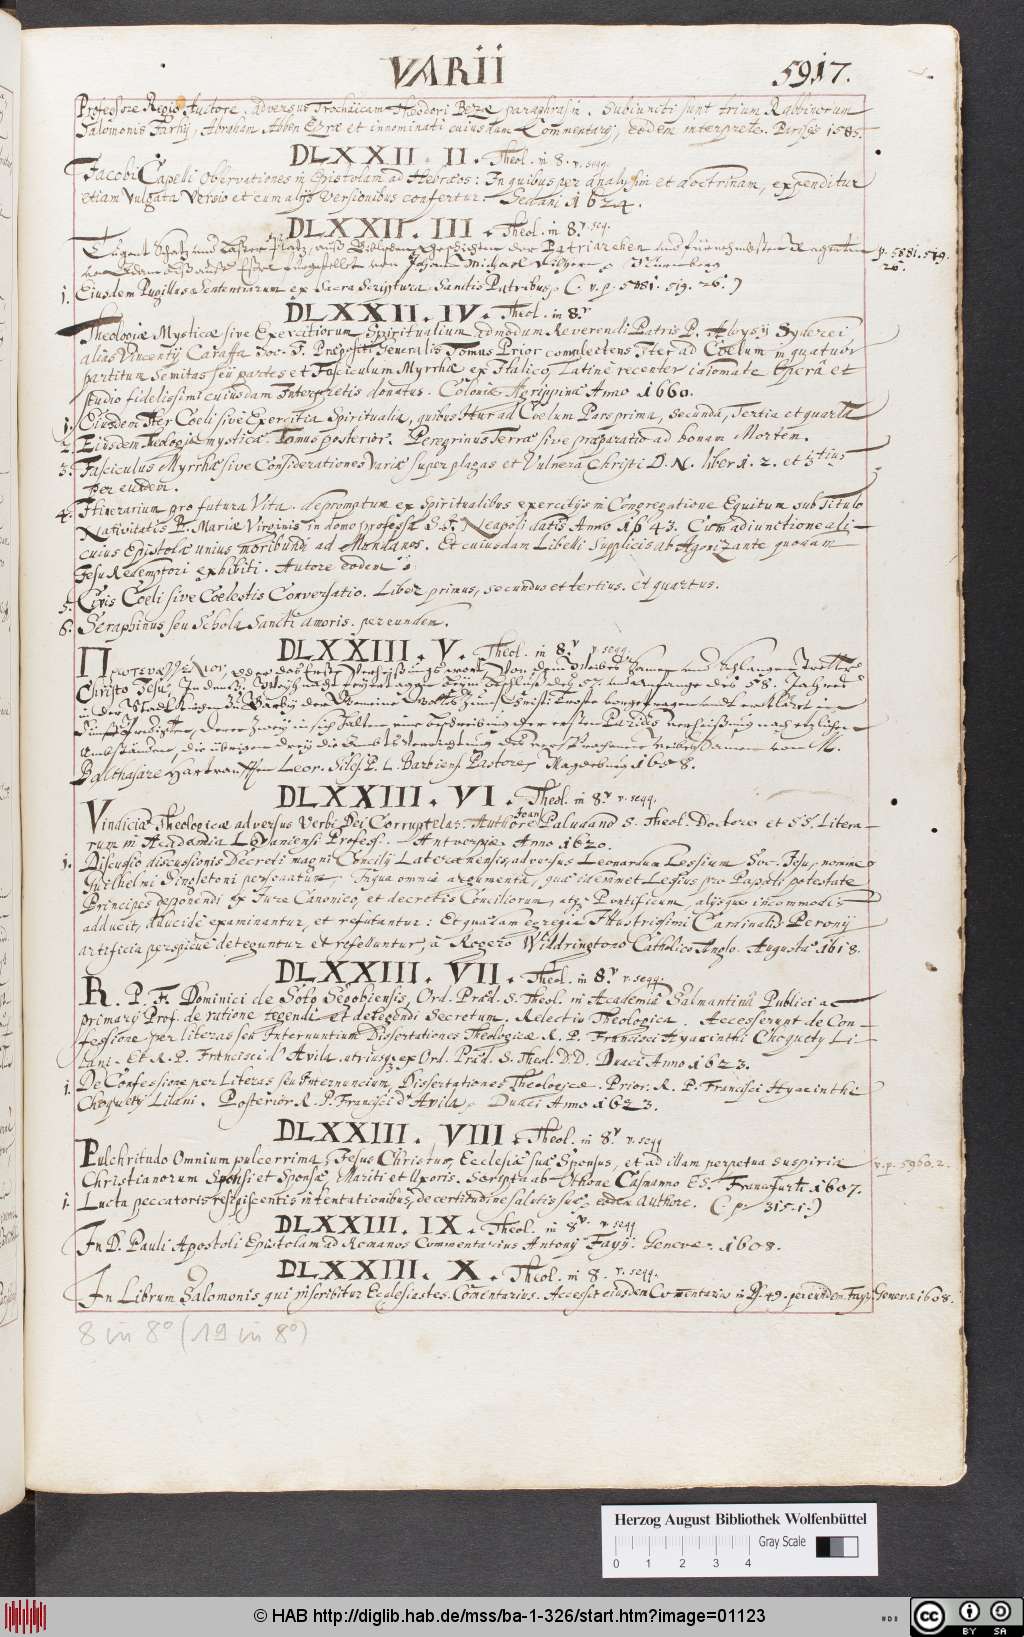 VARII 5917.
Professore Regio Auctore. adversus Trochaicam Theodori Bezæ paraphrasin. Subiuncti sunt trium Rabbinorum
Salomonis Jarhij, Abraham Abben Ezræ et innominati cuiusdam Commentarij, eodem interprete. Parisijs 1585.
DLXXII. II. Theol. in 8. v. seqq.
Jacobi Capelli Observationes in Epistolam ad Hebræos: In quibus per analysin et doctrinam, expenditur
etiam Vulgata Versio et cum alijs Versionibus confertur. Sedani 1624.
DLXXII. III. Theol. in 8.v seq.
Tugent Schatz und Laster Platz, auß Biblischen geschichten der Patriarchen und p. 5881. 519.
von Johann Michael Dilherrn Nürnberg 26.
1. Eiusdem Pugillus Sententiarum ex Sacra Scriptura Sanctis Patribus (v. p. 5881. 519. 26.)
DLXXII. IV. Theol. in 8.v
Theologiæ Mysticæ sive Exercitiorum Spiritualium admodum Reverendi Patris P. Aloysij Syderei
alias Vincentij Caraffa Soc. J. Præpositi Generalis Tomus Prior complectens Iter ad Coelum in quatuor
partitum Semitas seu partes et Fasciculum Myrrhæ ex Italico, Latine recenter idiomate Opera et
studio fidelissimi cuiusdam Interpretis donatus. Coloniæ Agrippinæ Anno 1660.
1. Eiusdem Iter Coeli sive Exercitia Spiritualia, quibus Itur ad Coelum Pars prima, Secunda, Tertia et quarta
2. Eiusdem Theologiæ mysticæ Tomus posterior. Peregrinus Terræ sive præparatio ad bonam Mortem.
3. Fasciculus Myrrhæ sive Considerationes Variæ super plagas et Vulnera Christi D. N. liber 1. 2. et 3tius
per eundem.
4. Itinerarium pro futura Vita depromptum ex Spiritualibus exercitijs in Congregatione Equitum sub Titulo
Nativitatis B. Mariæ Virginis in domo professa S. J. Neapoli datis Anno 1643. Cum adiunctione ali-
cuius Epistolæ unius moribundi ad Mundanos. Et cuiusdam Libelli Supplicis ab Agonizante quodam
Jesu Redemptori exhibiti. Autore eodem.
5. Civis Coeli sive Coelestis Conversatio. Liber primus, secundus et tertius. Et quartus.
6. Seraphinus seu Schola Sancti amoris. per eundem.
DLXXIII. V. Theol. in 8.v v. seqq.
Πρωτευαγγελιον, oder das Erste Verheissungs wort Von dem Weibes Samen und Schlangen Tretter
Christo Jesu,
M.
Balthasare Leor. Siles. P. L. Barbiensi Pastore, Magdeburg 1658.
DLXXIII. VI. Theol. in 8.v v. seqq.
Vindiciæ Theologicæ adversus Verbi Dei Corruptelas. Authore Joan. Paludano S. Theol. Doctore et SS. Litera-
rum in Academia Lovaniensi Profess. Antverpiæ Anno 1620.
1. Discussio discussionis Decreti magni Concilij Lateranensis, adversus Leonardum Lessium Soc. Jesu, nomine
Guilhelmi Singletoni personatum, In qua omnia argumenta, quæ idemmet Lessius pro Papali potestate
Principes deponendi ex Jure Canonico, et decretis Conciliorum, atque Pontificum, alijsque incommodis
adducit, dilucide examinantur, et refutantur: Et quædam egregia Illustrissimi Cardinalis Peronij
artificia perspicue deteguntur et refelluntur, a Rogero Widdringtono Catholico Anglo. Augustæ 1618.
DLXXIII. VII. Theol. in 8.v v. seqq.
R. P. F. Dominici de Soto Segobiensis, Ord. Præd. S. Theol. in Academia Salmantina Publici ac
primarij Prof. de ratione tegendi et detegendi Secretum. Relectio Theologica. Accesserunt de Con-
fessione per literas seu Internuntium Dissertationes Theologicæ R. P. Francisci Hyacinthi Choquety Li-
lani. Et R. P. Francisci d'Avila utriusque ex Ord. Præd. S. Theol. D.D. Duaci Anno 1623.
1. De Confessione per Literas seu Internuncium, Dissertationes Theologicæ. Prior. R. P. Francisci Hyacinthi
Choquety Lilani. Posterior R. P. Francisci d'Avila. Duaci Anno 1623.
DLXXIII. VIII. Theol. in 8.v v. seqq
Pulchritudo Omnium pulcerrima, Jesus Christus, Ecclesiæ suæ Sponsus, et ad illam perpetua suspiria v. p. 5960. 2.
Christianorum Sponsi et Sponsæ, Mariti et Uxoris. Scripta ab Othone Casmanno E.S. Francfurti 1607.
1. Lucta peccatoris resipiscentis in tentationibus, de certitudine salutis suæ eodem Authore. (p. 315. 1.)
DLXXIII. IX. Theol. in 8.v v. seqq
In D. Pauli Apostoli Epistolam ad Romanos Commentarius Antonij Fayij. Genevæ. 1608.
DLXXIII. X. Theol. in 8. v. seqq.
In Librum Salomonis qui inscribitur Ecclesiastes. Comentarius. Accessit eiusdem Comentario in Ps. 49. per eundem Fayi Geneva 1608.
8 in 8° (19 in 8°)
Herzog August Bibliothek Wolfenbüttel
Gray Scale
0 1 2 3 4
© HAB http://diglib.hab.de/mss/ba-1-326/start.htm?image=01123
cc BY SA